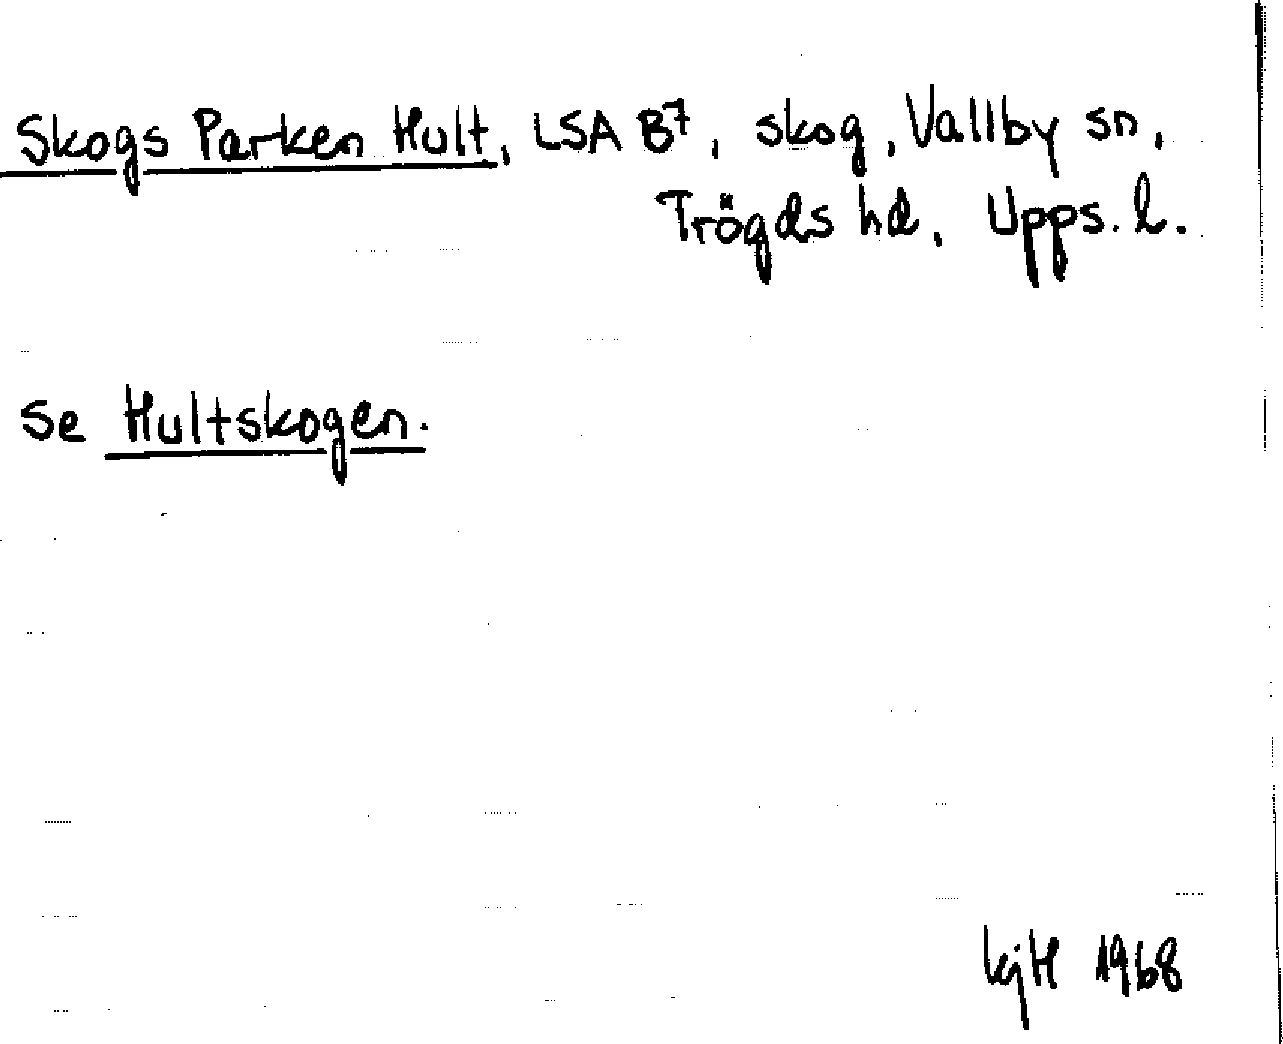 Skogs Parken Hult, LSA B7, skog, Vallby sn,
Trögds hd, Upps. l.
se Hultskogen.
KjH 1968